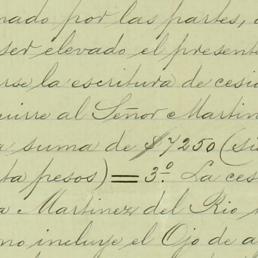 nado por las partes,
ser elevado el present
rse la escritura de cesi
uirre al Señor Martin
a suma de $7250 (si
ta pesos) = 3.º La ces
a Martinez del Rio
no incluye el Ojo de a